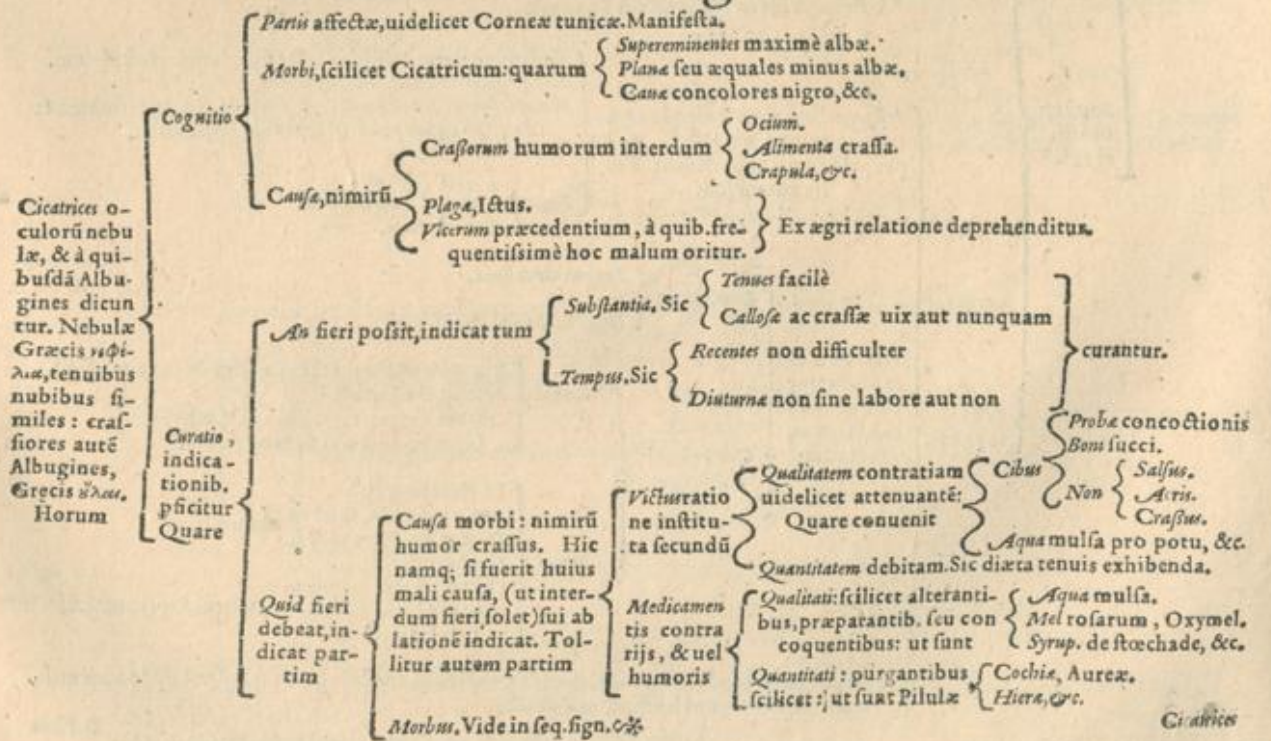 Cicatrices o-
culorũ nebu
læ, & à qui-
busdã Albu-
gines dicun
tur. Nebulæ
Græcis νεφέ-
λια, tenuibus
nubibus si-
miles : cras-
siores autẽ
Albugines,
Gręcis οὐλαι.
Horum
Cognitio
Partis affectæ, uidelicet Corneæ tunicæ. Manifesta.
Morbi, scilicet Cicatricum: quarum
Supereminentes maximè albæ.
Planæ seu æquales minus albæ.
Cauæ concolores nigro, &c.
Causæ, nimirũ
Crassorum humorum interdum
Ocium.
Alimenta crassa.
Crapula, &c.
Plagæ, Ictus.
Vlcerum præcedentium, à quib. fre-
quentissimè hoc malum oritur.
Ex ægri relatione deprehenditur.
Curatio,
indica-
tionib.
pficitur
Quare
An fieri possit, indicat tum
Substantia. Sic
Tenues facilè
Callosæ ac crassæ uix aut nunquam
Tempus. Sic
Recentes non difficulter
Diuturnæ non sine labore aut non
curantur.
Quid fieri
debeat, in-
dicat par-
tim
Causa morbi : nimirũ
humor crassus. Hic
namq; si fuerit huius
mali causa, (ut inter-
dum fieri solet) sui ab
lationẽ indicat. Tol-
litur autem partim
Victus ratio
ne institu-
ta secundũ
Qualitatem contratiam
uidelicet attenuantẽ:
Quare conuenit
Cibus
Probæ concoctionis
Boni succi.
Non
Salsus.
Acris.
Crassus.
Aqua mulsa pro potu, &c.
Quantitatem debitam. Sic diæta tenuis exhibenda.
Medicamen
tis contra
rijs, & uel
humoris
Qualitati: scilicet alteranti-
bus, præparantib. seu con
coquentibus: ut sunt
Aqua mulsa.
Mel rosarum, Oxymel.
Syrup. de stœchade, &c.
Quantitati : purgantibus
scilicet : ut sunt Pilulæ
Cochiæ, Aureæ.
Hieræ, &c.
Morbus. Vide in seq. sign.
Cicatrices